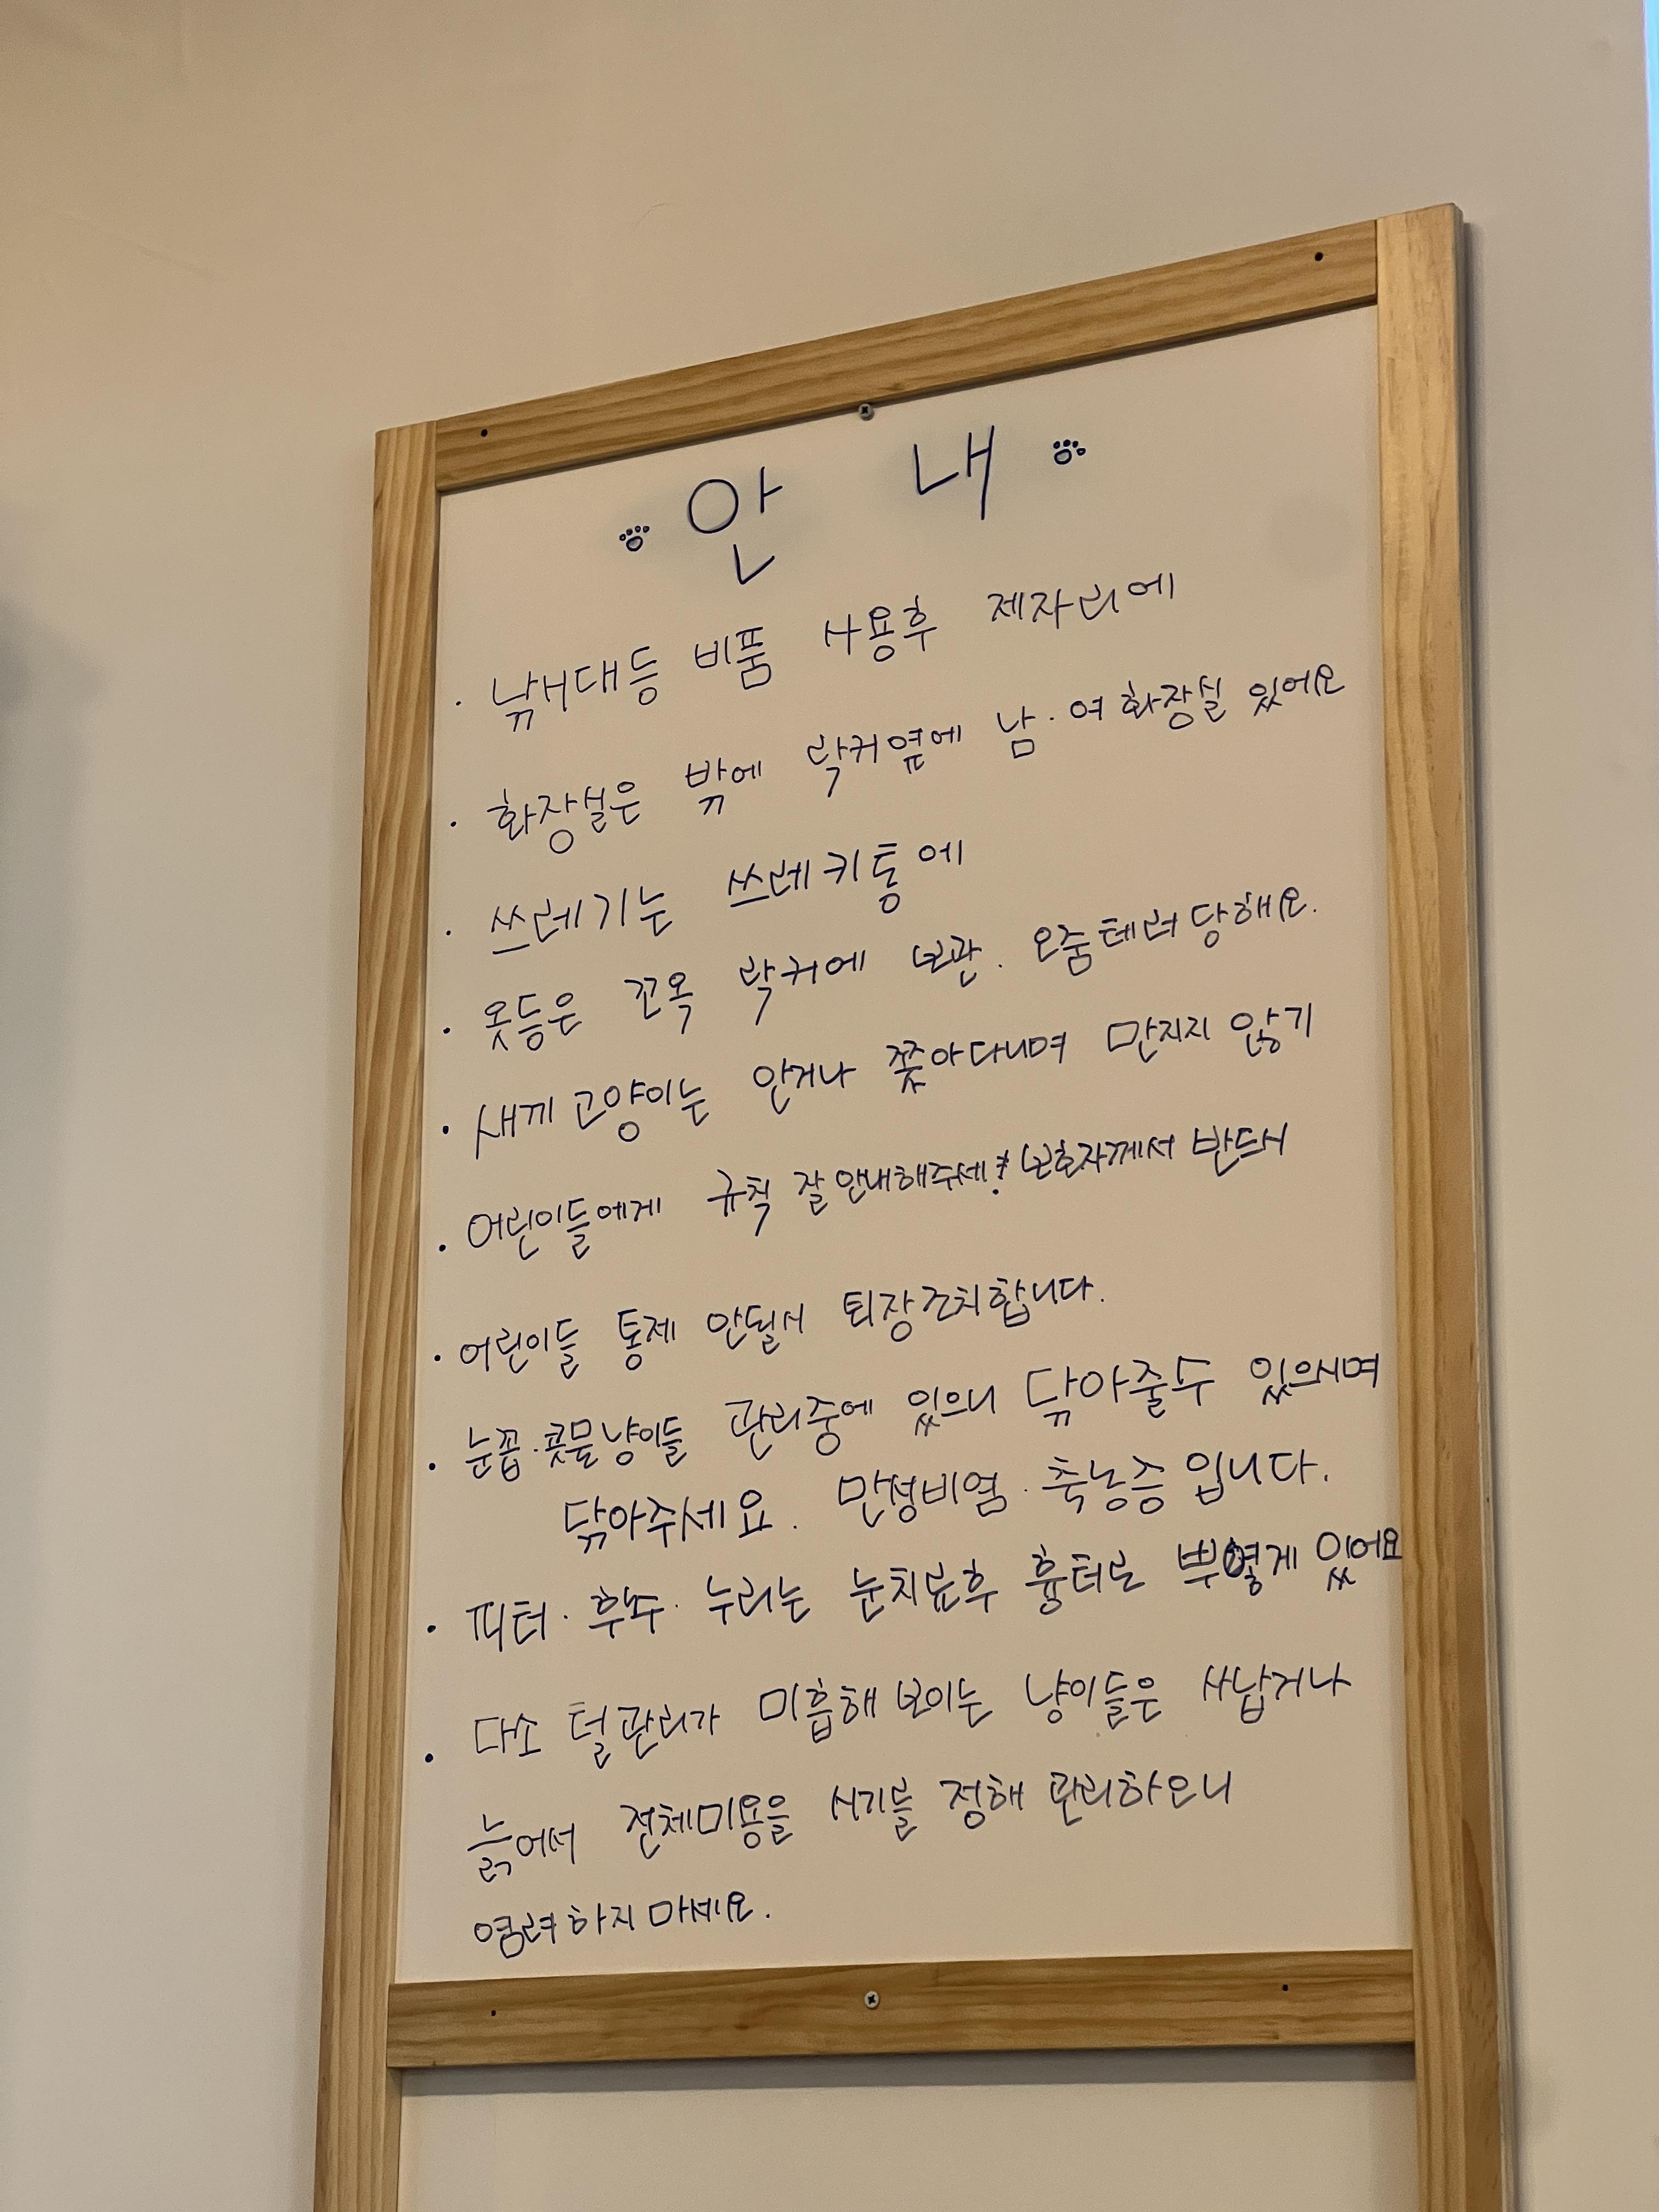 안 내
· 낚시대등 비품 사용후 제자리에
· 화장실은 밖에 락커옆에 남·여 화장실 있어요
· 쓰레기는 쓰레키통에
· 옷등은 꼬옥 락커에 보관. 오줌테러당해요.
· 새끼고양이는 안거나 쫓아다니며 만지지 않기
· 어린이들에게 규칙 잘안내해주세요! 보호자께서 반드시
· 어린이들 통제 안될시 퇴장조치합니다.
· 눈꼽·콧물냥이들 관리중에 있으니 닦아줄수 있으시며
닦아주세요. 만성비염·축농증입니다.
· 피터· 후추· 누리는 눈치료후 흉터로 뿌옇게 있어요
· 다소 털관리가 미흡해보이는 냥이들은 사납거나
늙어서 전체미용을 시기를 정해 관리하오니
염려하지마세요.